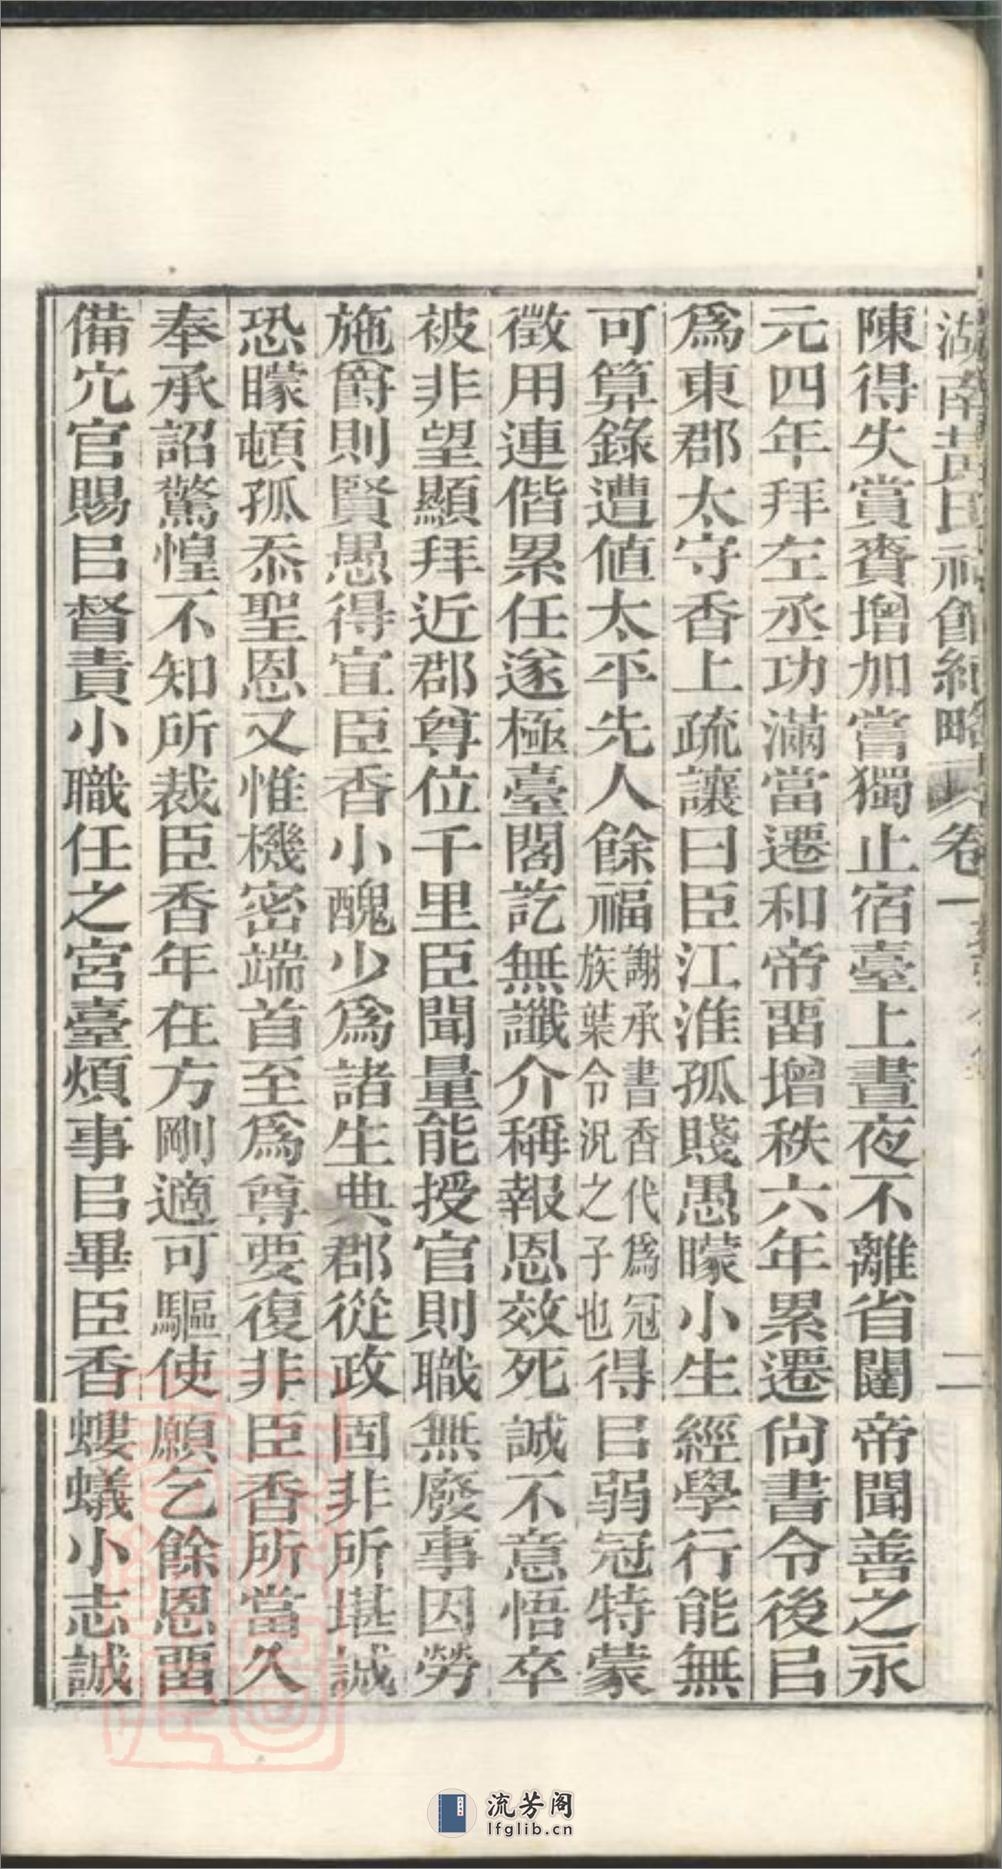 湖南黃氏祠館紀略 卷一 二
陳得失賞賚增加嘗獨止宿臺上晝夜不離省闥帝聞善之永
元四年拜左丞功滿當遷和帝畱增秩六年累遷尙書令後㠯
爲東郡太守香上疏讓曰臣江淮孤賤愚矇小生經學行能無
可算錄遭值太平先人餘福謝承書香代爲冠族葉令況之子也得㠯弱冠特蒙
徵用連偕累任遂極臺閣訖無讖介稱報恩效死誠不意悟卒
被非望顯拜近郡尊位千里臣聞量能授官則職無廢事因勞
施爵則賢愚得宜臣香小醜少爲諸生典郡從政固非所堪誠
恐矇頓孤忝聖恩又惟機密端首至爲尊要復非臣香所當久
奉承詔驚惶不知所裁臣香年在方剛適可驅使願乞餘恩畱
備冗官賜㠯督責小職任之宮臺煩事㠯畢臣香螻蟻小志誠
流芳阁
lfglib.cn